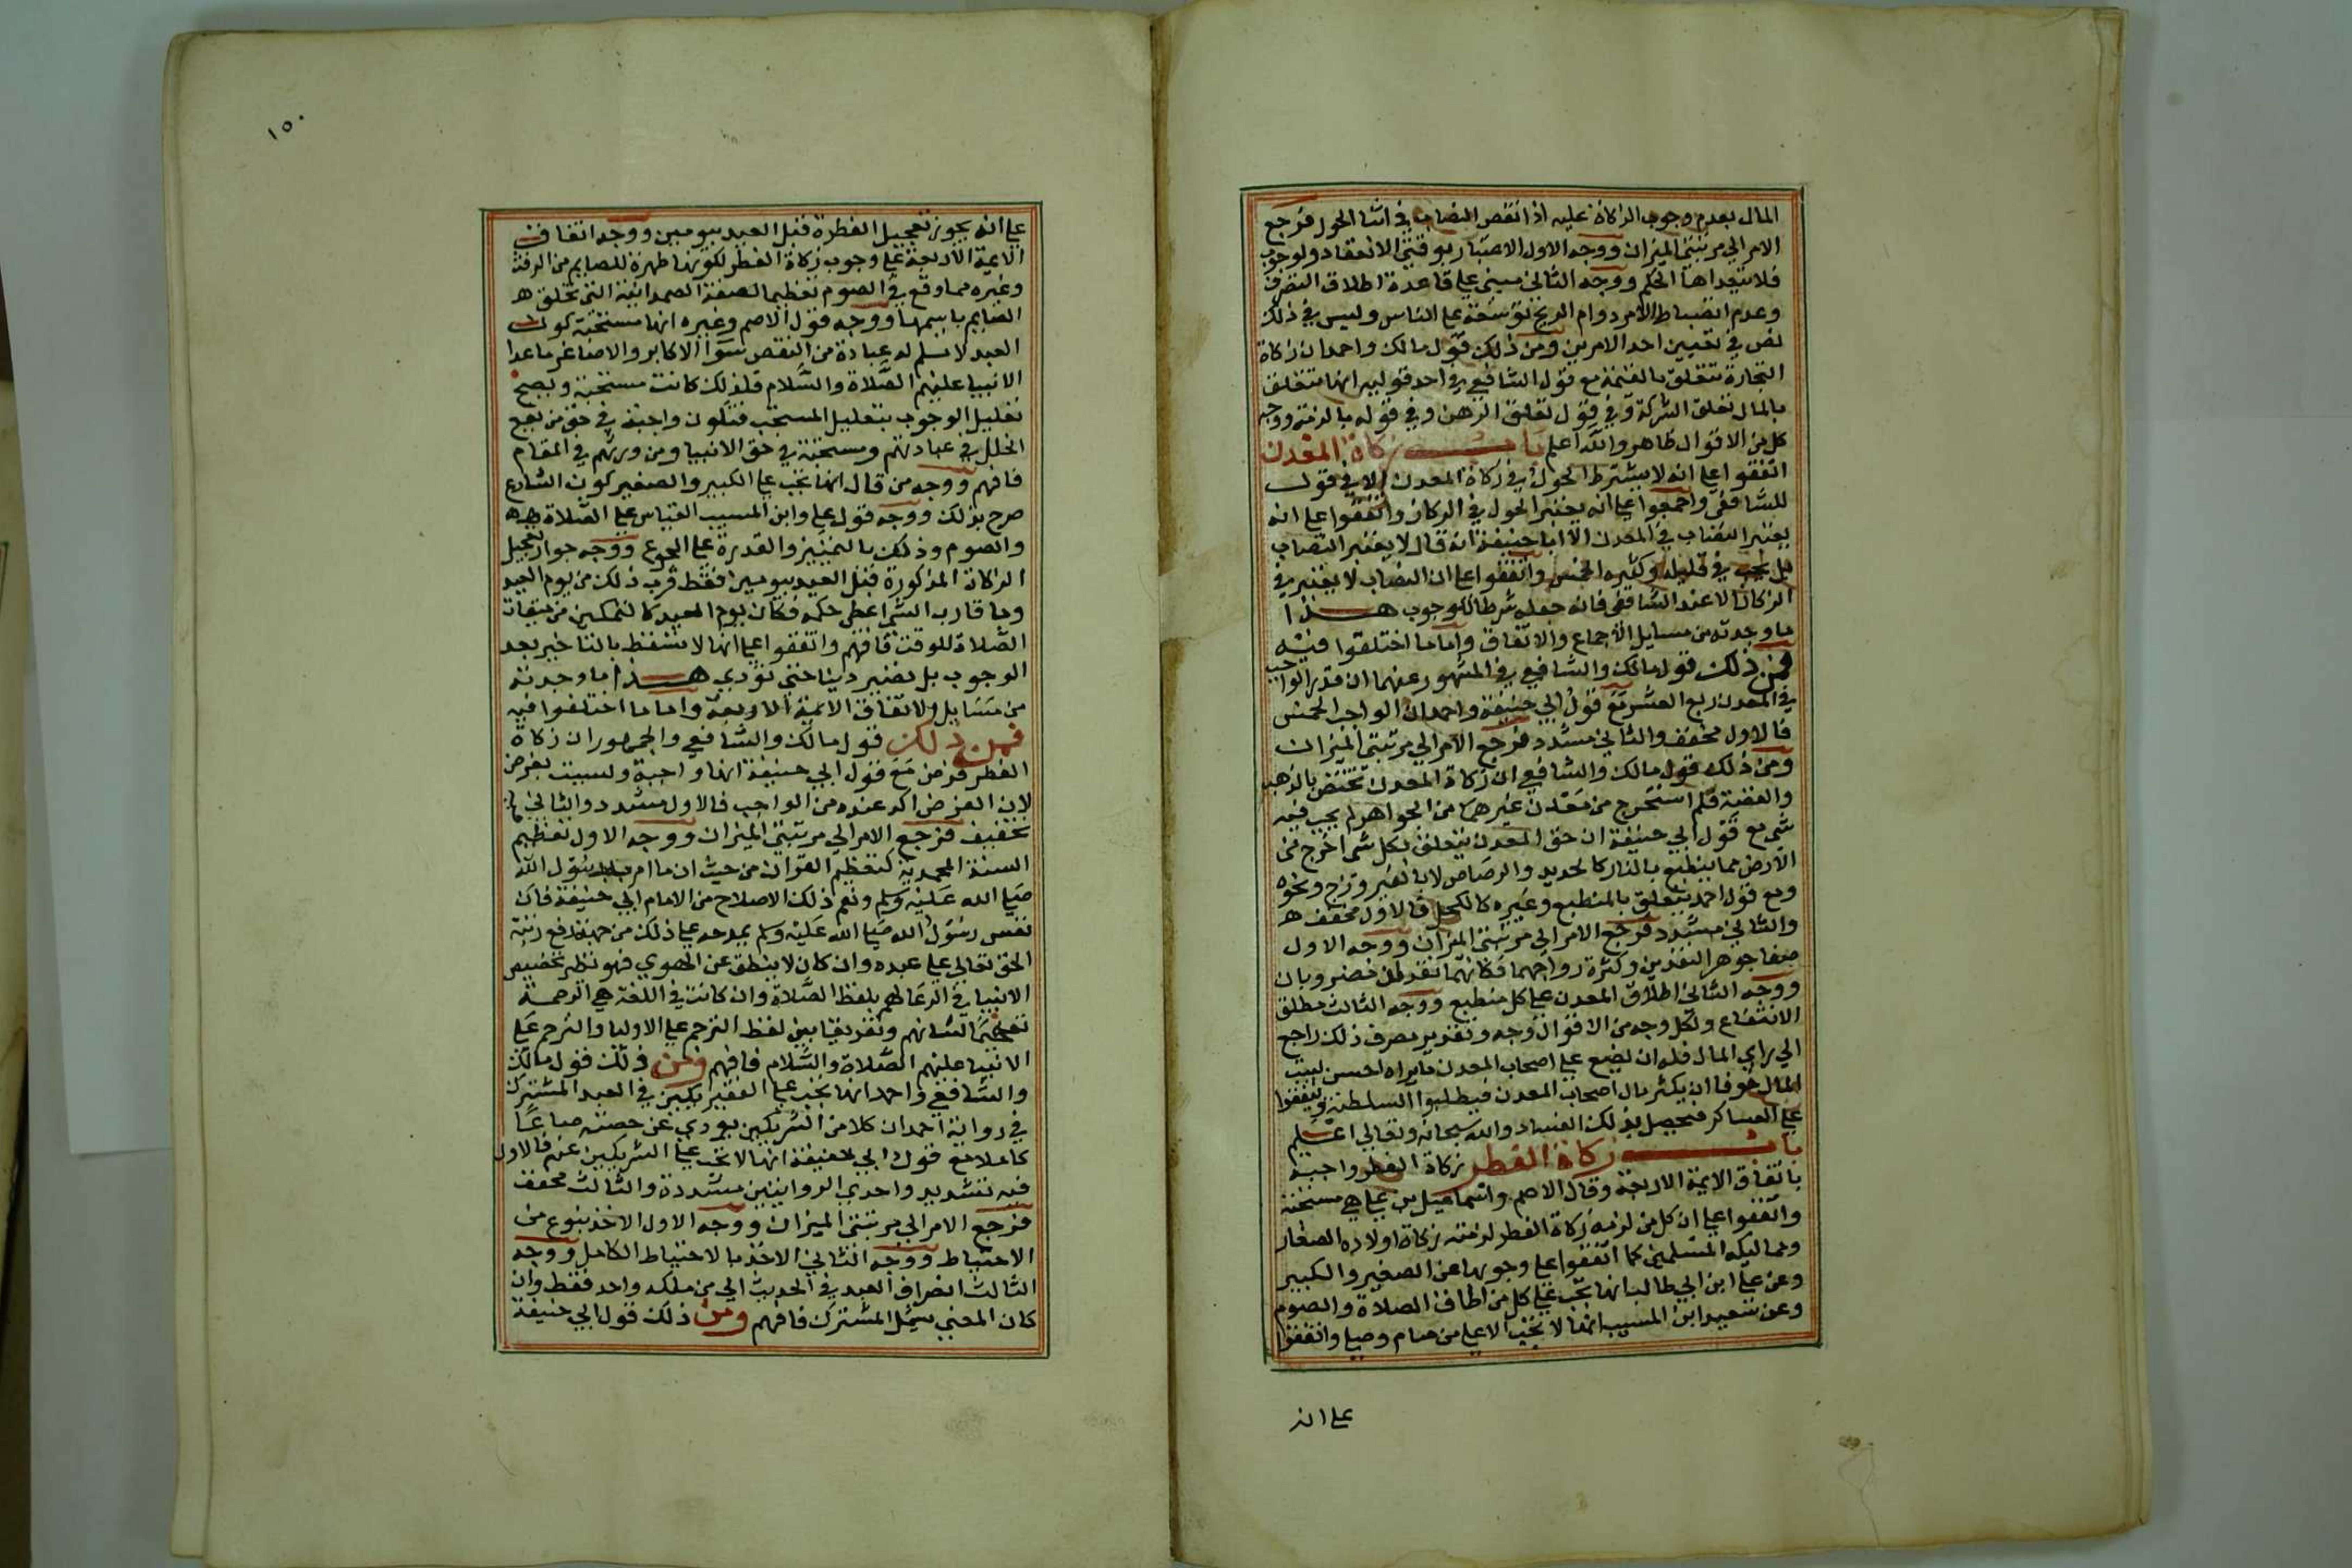 المال بعدم وجوب الزكاة عليه اذا نقص النصاب في اثنا الحول فرجع
الامر الي مرتبتي الميزان ووجه الاول الاعتبار بوقتي الانعقاد والوجوب
فلا يتعداها الحكم ووجه الثاني مبني علي قاعدة اطلاق التصرف
وعدم انضباط الامر دوام الربح توسخة علي الناس وليس في ذلك
نص في تعيين احد الامرين ومن ذلك قول مالك واحمد ان زكاة
التجارة تتعلق بالقيمة مع قول الشافعي في احد قوليه انها تتعلق
بالمال تعلق الشركة وفي قول تعلق الرهن وفي قوله بالذمة ووجه
كل من الاقوال ظاهر والله اعلم باب زكاة المعدن
اتفقوا علي انه لا يشترط الحول في زكاة المعدن الا في قول
للشافعي واجمعوا علي انه يعتبر الحول في الركاز واتفقوا علي انه
يعتبر النصاب في المعدن الا ابا حنيفة انه قال لا يعتبر النصاب
بل يجب في قليله وكثيره الخمس واتفقوا علي ان النصاب لا يعتبر في
الركاز الا عند الشافعي فانه جعله شرطا للوجوب هذا
ما وجدته من مسايل الاجماع والاتفاق واما ما اختلفوا فيه
فمن ذلك قول مالك والشافعي في المشهور عنهما ان قدر الواجب
في المعدن ربع العشر مع قول ابي حنيفة واحمد ان الواجب الخمس
فالاول مخفف والثاني مشدد فرجع الامر الي مرتبتي الميزان
ومن ذلك قول مالك والشافعي ان زكاة المعدن تختص بالذهب
والفضة فلم استخرج من معدن غيرهما من الجواهر لم يجب فيه
شي مع قول ابي حنيفة ان حق المعدن يتعلق لكل شي اخرج من
الارض مما ينطبع بالنار كالحديد والرصاص لا بالفيروزج ونحوه
ومع قول احمد يتعلق بالمنطبع وغيره كالكحل فالاول مخفف ه
والثاني مشدد فرجع الامر الي مرتبتي الميزان ووجه الاول
صفا جوهر النقدين وكثرة رواجهما فكانهما نقدان مضروبان
ووجه الثاني اطلاق المعدن علي كل منطبع ووجه الثالث مطلق
الانتفاع ولكل وجه من الاقوال وجه وتقدير مصرف ذلك راجع
الي راي المال فله ان يضع علي اصحاب المعدن ما يراه احسن لبيت
المال خوفا ان يكثر مال اصحاب المعدن فيطلبوا السلطنة وينفقوا
علي العساكر فيحصل بذلك الفساد والله سبحانه وتعالي اعلم
باب زكاة الفطر زكاة الفطر واجبة
باتفاق الايمة الاربعة وقال الاصم واسماعيل بن علي هي مستحبة
واتفقوا علي ان كل من لزمه زكاة الفطر لزمته زكاة اولاده الصغار
ومماليكه المسلمين كما اتفقوا علي وجوبها عن الصغير والكبير
وعن علي ابن ابي طالب انها تجب علي كل من اطاق الصلاة والصوم
وعن سعيد ابن المسيب انها لا تجب الا علي من صام وصلي واتفقوا
علي انه
١٥٠
علي انه يجوز تعجيل الفطرة قبل العيد بيومين ووجه اتفاق
الايمة الاربعة علي وجوب زكاة الفطر لكونها طهرة للصايم من الرفث
وغيره مما وقع في الصوم تعظيما لصفة الصمدانية التي تخلق ه
الصايم باسمها ووجه قول الاصم وغيره انها مستحبة كون
العبد لا يسلم له عبادة من النقص سوا الاكابر والاصاغر ما عدا
الانبيا عليهم الصلاة والسلام فلذلك كانت مستحبة ويصح
تعليل الوجوب بتعليل المستحب فتكون واجبة في حق من يقع
الخلل في عبادتهم ومستحبة في حق الانبيا ومن ورثهم في المقام
فافهم ووجه من قال انها تجب علي الكبير والصغير كون الشارع
صرح بذلك ووجه قول علي وابن المسيب القياس علي الصلاة ه ه
والصوم وذلك بالتمييز والقدرة علي الجوع ووجه جواز تعجيل
الزكاة المذكورة قبل العيد بيومين فقط قرب ذلك من يوم العيد
وما قارب الشي اعطي حكمه فكان يوم العيد كالتمكين من ميقات
الصلاة للوقت فافهم واتفقوا علي انها لا تسقط بالتاخير بعد
الوجوب بل تصير دينا حتي تؤدي هذا ما وجدته
من مسايل ولاتفاق الايمة الاربعة واما ما اختلفوا فيه
فمن ذلك قول مالك والشافعي والجمهور ان زكاة
الفطر فرض مع قول ابي حنيفة انها واجبة وليست بفرض
لان الفرض اكد عنده من الواجب فالاول مشدد والثاني
تخفيف فرجع الامر الي مرتبتي الميزان ووجه الاول تعظيم
السنة المحمدية كتعظيم القران من حيث ان ما امر به رسول الله
صلي الله عليه وسلم ونعم ذلك الاصلاح من الامام ابي حنيفة فان
نفس رسول الله صلي الله عليه وسلم يمدحه علي ذلك من جهة رفع رتبة
الحق تعالي علي عبده وان كان لا ينطق عن الهوي فهو نظير تخصيص
الانبيا في الدعا لهم بلفظ الصلاة وان كانت في اللغة هي الرحمة
تفخيما لشانهم وتفريقا بين لفظ الترحم علي الاوليا والترحم علي
الانبيا عليهم الصلاة والسلام فافهم ومن ذلك قول مالك
والشافعي واحمد انها تجب علي الفقير يكيين في العبد المشترك
في رواية احمد ان كلا من الشريكين يودي عن حصته صاعا
كاملا مع قول ابي حنيفة انها لا تجب علي الشريكين عنه فالاول
فيه تشديد واحدي الروايتين مشددة والثالث مخفف
فرجع الامر الي مرتبتي الميزان ووجه الاول الاخذ بنوع من
الاحتياط ووجه الثاني الاخذ بالاحتياط الكامل ووجه
الثالث انصراف العبد في الحديث الي من ملكه واحد فقط وان
كان المعني يشمل المشترك فافهم ومن ذلك قول ابي حنيفة